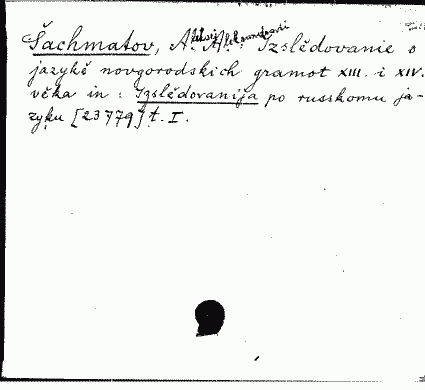 Šachmatov, Aleksěj Aleksandrovič Izslědovanie o
jazykě novgorodskich gramot XIII. i XIV.
věka in : Izslědovanija po russkomu ja-
zyku [23779] t. I.